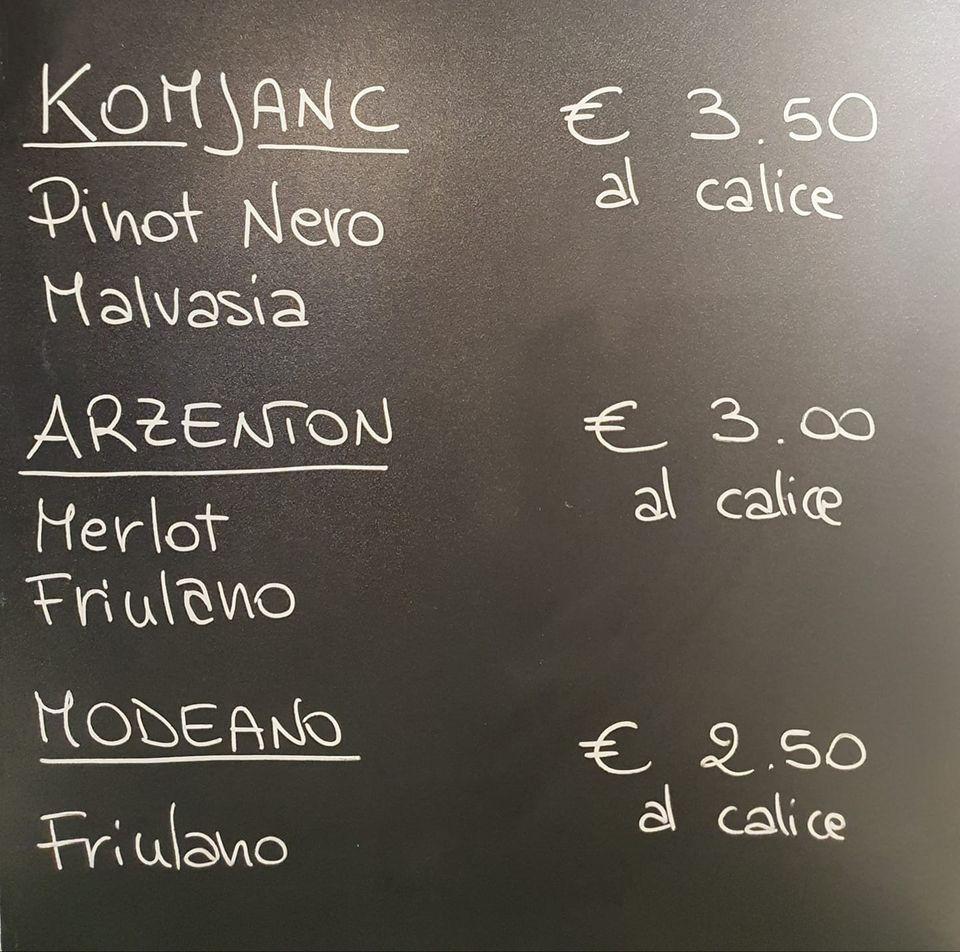 KOMJANC € 3.50
al calice
Pinot Nero
Malvasia
ARZENTON € 3.00
al calice
Merlot
Friulano
MODEANO € 2.50
al calice
Friulano